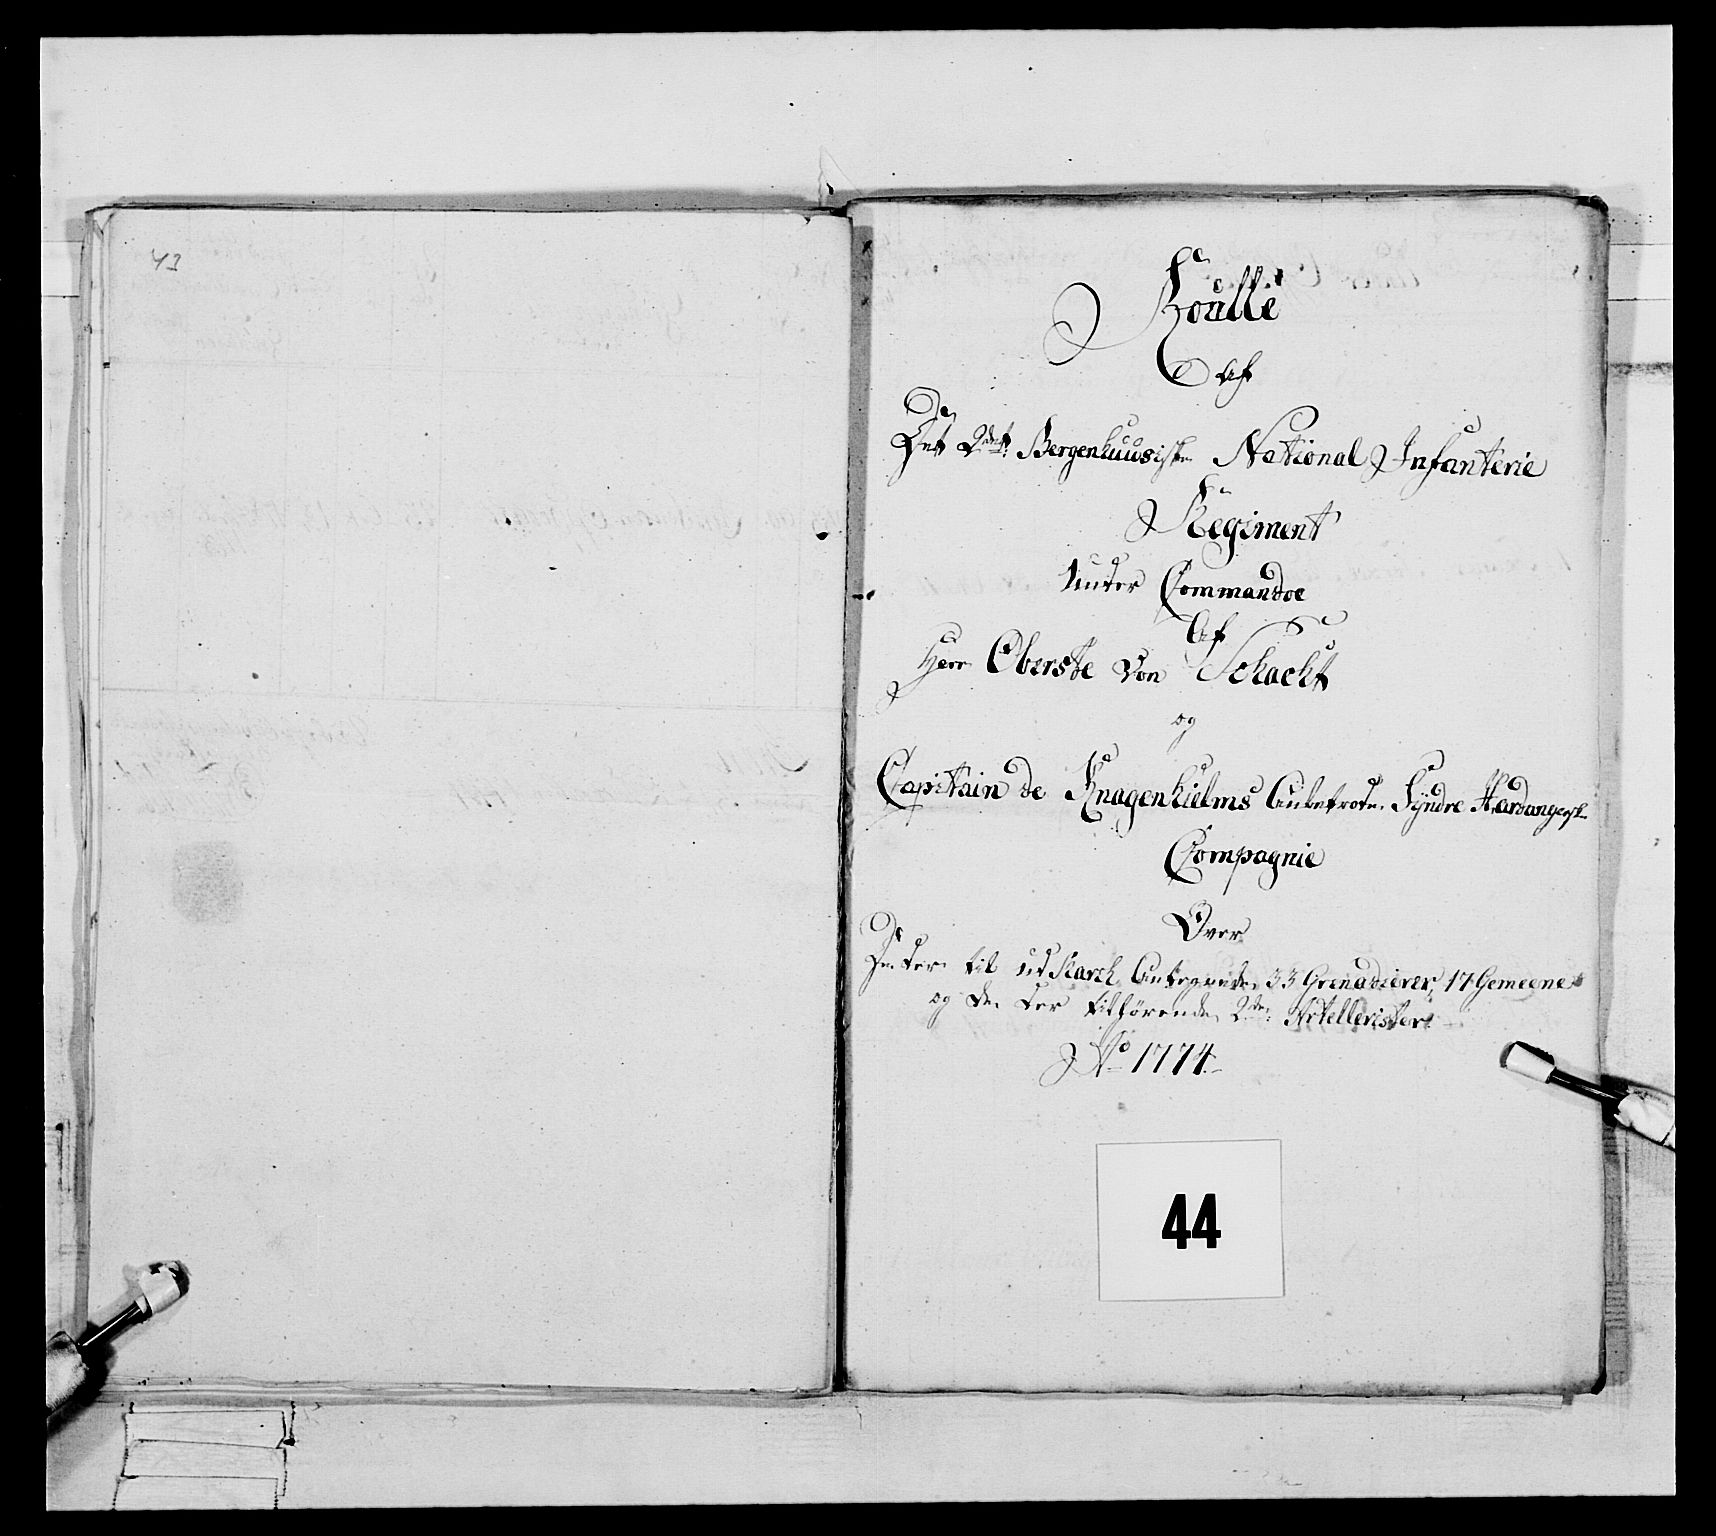 43
Roulle
af
Det 2det Bergenhuusiske National Infanterie
Regiment
Under Commandoe
Af
Herr Oberste von Schacht
og
Capitain de Knagenhielms Anbetroede Syndre Hardangerske
Compagnie
Over
De der til ud March Antegnede 33 Grenaderer, 17 Gemeene
og de der tilhörende 2de Artellerister
Ao 1774
44